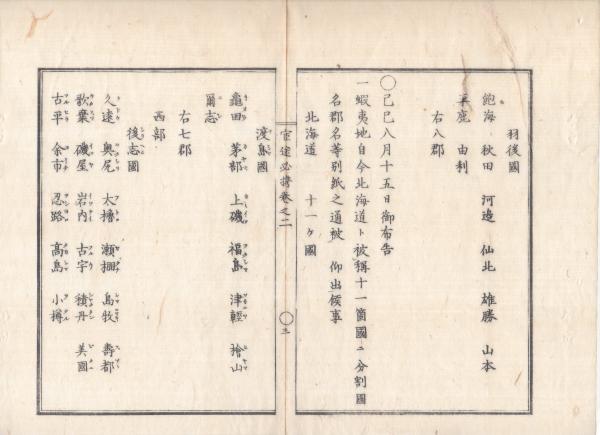 羽後國
飽海 秋田 河邉 仙北 雄勝 山本
平鹿 由利
右八郡
〇己巳八月十五日御布告
一蝦夷地自今北海道ト被稱十一箇國ニ分割國
名郡名等別紙之通被 仰出候事
北海道 十一ケ國
官途必携巻之二
〇三
渡島國
龜田 茅部 上磯 福島 津輕 檜山
爾志
右七郡
西部
後志國
久遠 奥尻 太擼 瀬棚 島牧 壽都
歌棄 磯屋 岩内 古宇 積丹 美國
古平 余市 忍路 高島 小樽